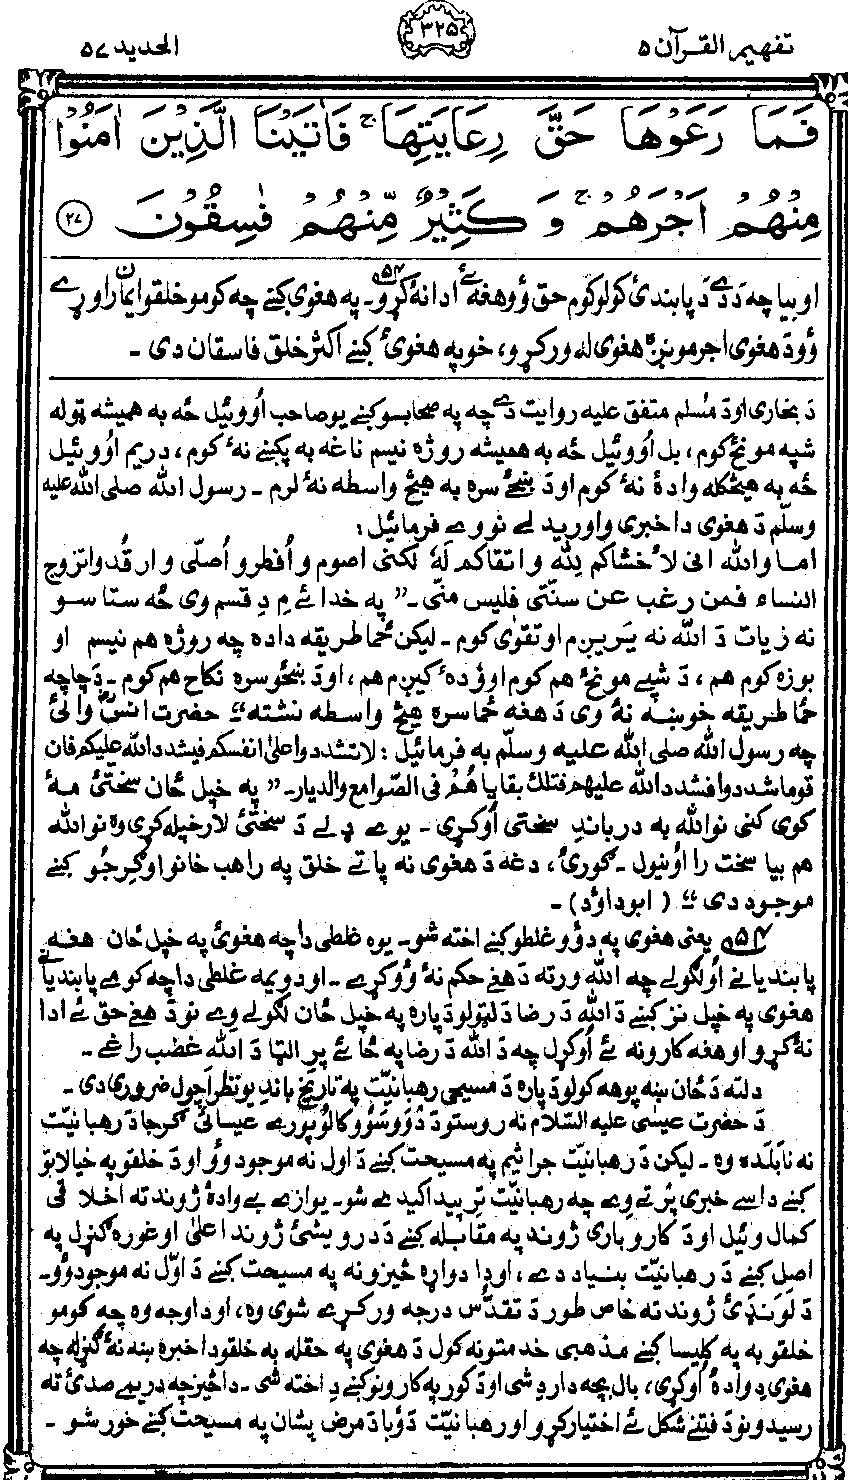 تفهیم القرآن ۵
۳۲۵
الحدید ۵۷
فَمَا رَعَوْهَا حَقَّ رِعَايَتِهَا ۚ فَاٰتَيْنَا الَّذِيْنَ اٰمَنُوْا
مِنْهُمْ اَجْرَهُمْ ۚ وَ كَثِيْرٌ مِّنْهُمْ فٰسِقُوْنَ ۲۷
او بیا چه د دے د پابندئ کولو کوم حق وو هغه ئے ادا نهٔ کړو۔ ۵۴ په هغوی کښے چه کومو خلقو ایمان راوړے
وو د هغوی اجر مونږه هغوی له ورکړو، خو په هغوی کښے اکثر خلق فاسقان دی ۔
د بخاری اود مُسلم متفق علیه روایت دے چه په صحابو کښے یو صاحب اُووئیل څه به همیشه ټوله
شپه مونځ کوم، بل اُووئیل څه به همیشه روژه نیسم ناغه به پکښے نهٔ کوم، دریم اُووئیل
څه به هیڅکله وادهٔ نهٔ کوم اود ښځے سره به هیڅ واسطه نهٔ لرم ۔ رسول الله صلی الله علیه
وسلّم د هغوی دا خبری واوریدلے نو وے فرمائیل:
اما والله انی لاَ خشاکم لِلّٰه واتقاکم لَهٗ لٰکنی اصوم واُفطر و اُصلّی وارقُد واتزوج
النساء فمن رغب عن سنّتی فلیس منّی ۔” په خدائے م دِ قسم وی څه ستا سو
نه زیات د الله نه یریږم او تقویٰ کوم ۔ لیکن څما طریقه داده چه روژه هم نیسم او
بوزه کوم هم، د شپے مونځ هم کوم او اُوده کیږم هم، اود ښځو سره نکاح هم کوم ۔ د چا چه
څما طریقه خوښه نهٔ وی د هغه څما سره هیڅ واسطه نشته“ حضرت انسؓ وائی
چه رسول الله صلی الله علیه وسلّم به فرمائیل: لا تشددوا علیٰ انفسکم فیشدد الله علیکم فان
قوما شددوا فشدد الله علیهم فتلك بقایاهُمْ فی الصّوامع والدیار ۔” په خپل ځان سختئ مهٔ
کوی کنی نو الله به در باندِ سختی اُوکړی ۔ یوے ډلے د سختئ لار خپله کړی وه نو الله
هم بیا سخت را اُونیول ۔ ګورئ، دغه د هغوی نه پاتے خلق په راهب خانو او ګِرجُو کښے
موجود دی“ (ابوداؤد) ۔
۵۴ یعنی هغوی په دوؤ غلطو کښے اخته شو۔ یوه غلطی دا چه هغوئ په خپل ځان هغه
پابندیانے اُولګولے چه الله ورته د هغے حکم نهٔ ووکړے ۔ اود ویمه غلطی دا چه کومے پابندیانے
هغوی په خپل نز کښے د الله د رضا د لټولو دپاره په خپل ځان لګولے وے نو د هغے حق ئے ادا
نهٔ کړو او هغه کارونه ئے اُوکړل چه د الله د رضا په ځائے پر الټا د الله غضب راغے ۔
دلته د ځان ښه پوهه کولو دپاره د مسیحی رهبانیّت په تاریخ باندِ یو نظر اَچول ضروری دی ۔
د حضرت عیسٰی علیه السّلام نه روستو د دُوَوسَوُو کالو پورے عیسائی ګرجا د رهبانیّت
نه نابَلَده وه ۔ لیکن د رهبانیّت جراثیم په مسیحت کښے د اول نه موجود وو اود خلقو په خیالاتو
کښے داسے خبری پرتے وے چه رهبانیّت تر پیدا کیدے شو۔ یوازے بے وادهٔ ژوند ته اخلاقی
کمال وئیل اود کاروباری ژوند په مقابله کښے د درویشئ ژوند اعلیٰ او غوره ګڼړل په
اصل کښے د رهبانیّت بنیاد دے، اودا دواړه څیزونه په مسیحت کښے د اوّل نه موجود وو۔
د لَوَنډئ ژوند ته خاص طور د تقدُّس درجه ورکړے شوی وه، اودا وجه وه چه کومو
خلقو به په کلیسا کښے مذهبی خدمتونه کول د هغوی په حقله به خلقو دا خبره ښه نهٔ ګڼړله چه
هغوی دِ وادهٔ اُوکړی، بال بچه دار دِ شی اود کور په کارونو کښے دِ اخته شی ۔ دا څیز چه دریمے صدئ ته
رسیدو نو د فتنے شکل ئے اختیار کړو او رهبانیّت د وَبا د مرض پشان په مسیحت کښے خور شو ۔